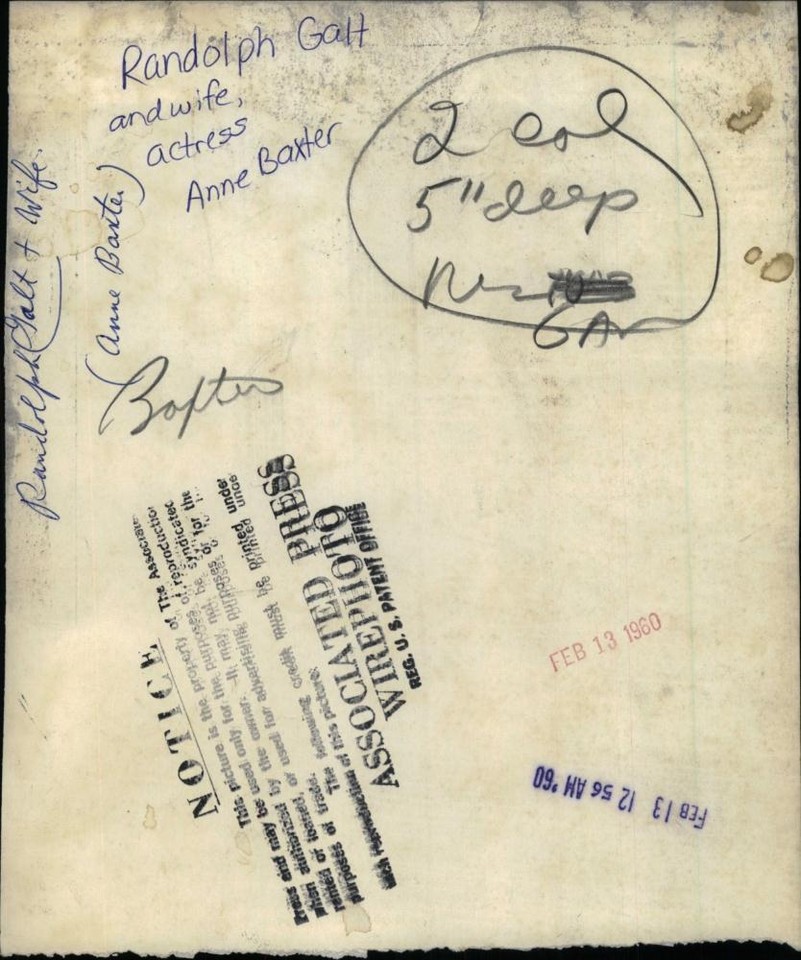 Randolph Galt
and wife,
actress
Anne Baxter
2 col
5" deep
GAM
Randolph Galt + Wife.
(Anne Baxter)
Baxter
NOTICE
This picture is the property of The Associated
Press and may be used only for the purposes of reproduction
when authorized by the owner. It may not be syndicated
rented or loaned, or used for advertising purposes or for the
purposes of trade. The following credit must be printed under
each reproduction of this picture:
ASSOCIATED PRESS
WIREPHOTO
REG. U. S. PATENT OFFICE
FEB 13 1960
FEB 13 12 56 AM '60